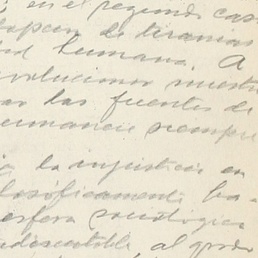 , en el segundo cas
tapan de tiranias
tud humana. A
evoluciones nuestr
ar las fuentes de
ermanece siempre
la injusticia en
losóficamente ha-
esfera sociológica
ndiscutible, al grado